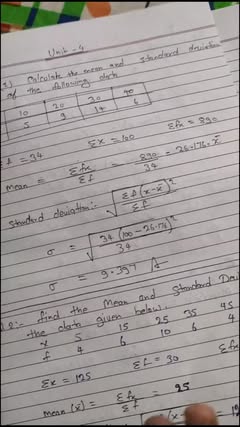 Unit - 4
1) Calculate the mean and standard deviation
of the following data
10 20 30 40
5 9 14 6
Σx = 100 Σfx = 890
Σf = 34
mean = Σfx / Σf = 890 / 34 = 26.176 = x̄
Standard deviation :- √Σf(x-x̄)² / Σf
σ = √34(100 - 26.176)² / 34
σ = 9.397
2:- find the Mean and Standard Devi
the data given below.
x 5 15 25 35 45
f 4 6 10 6 4
Σx = 125 Σf = 30 Σfx
mean (x̄) = Σfx / Σf = 25